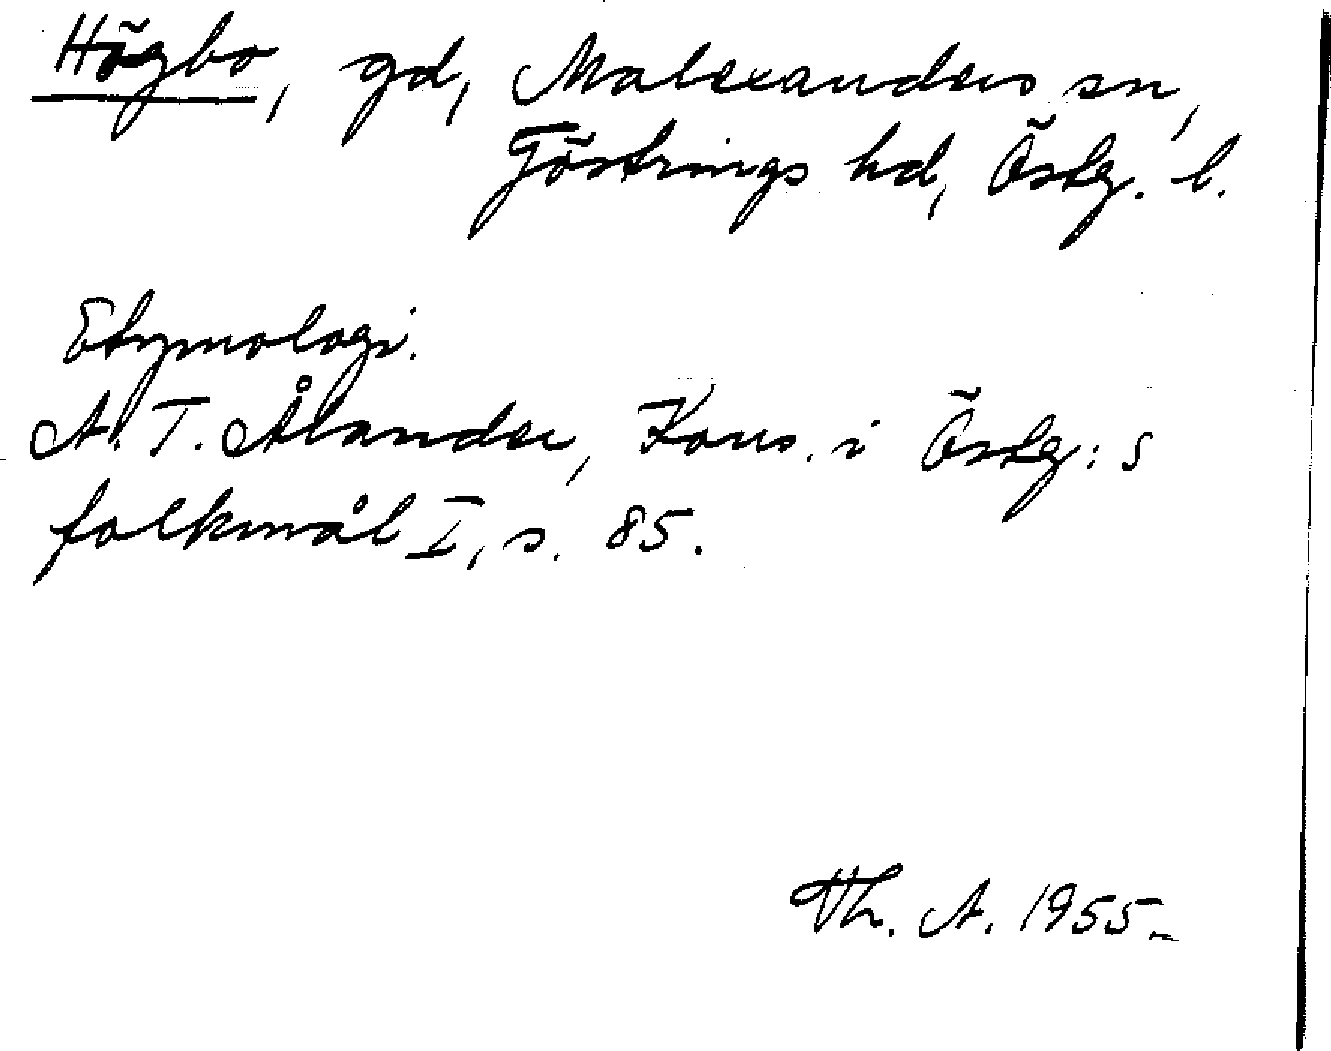 Högbo, gd, Malexanders sn,
Göstrings hd, Östg. l.
Etymologi.
A. T. Ålander, Kons. i Östg:s
folkmål I, s. 85.
Th. A. 1955.